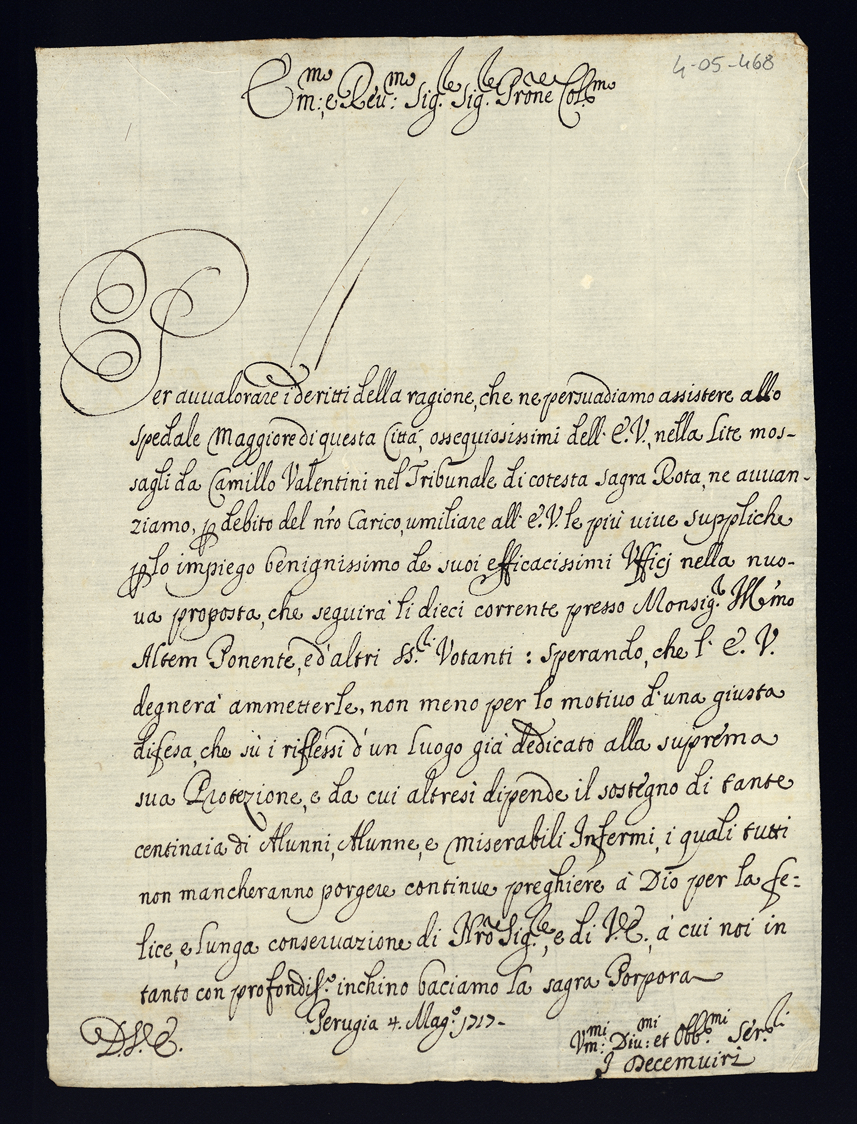 4-05-468
Em:mo e Reu:mo Sig:re Sig:re Prone Coll:mo
Per auualorare i deritti della ragione, che ne persuadiamo assistere allo
spedale Maggiore di questa Città, ossequiosissimi dell' E.V., nella Lite mos-
sagli da Camillo Valentini nel Tribunale di cotesta Sagra Rota, ne auuan-
ziamo, p debito del nro Carico, umiliare all' E.V. le più uiue suppliche
p lo impiego benignissimo de suoi efficacissimi Vfficj nella nuo-
ua proposta, che seguirà li dieci corrente presso Monsig:r
Altem Ponente, e d'altri SS:ri Votanti: sperando, che l' E. V.
degnerà ammetterle, non meno per lo motiuo d'una giusta
difesa, che sù i riflessi d'un Luogo già dedicato alla suprema
sua Protezione, e da cui altresì dipende il sostegno di tante
centinaia di Alunni, Alunne, e miserabili Infermi, i quali tutti
non mancheranno porgere continue preghiere à Dio per la fe=
lice, e lunga conseruazione di Nro Sig:re, e di V.E., à cui noi in
tanto con profondiss:o inchino baciamo la sagra Porpora
Perugia 4. Mag:o 1717-
D.V.E.
Vm:mi Diu:mi et Obb:mi Ser:ri
I Decemuiri